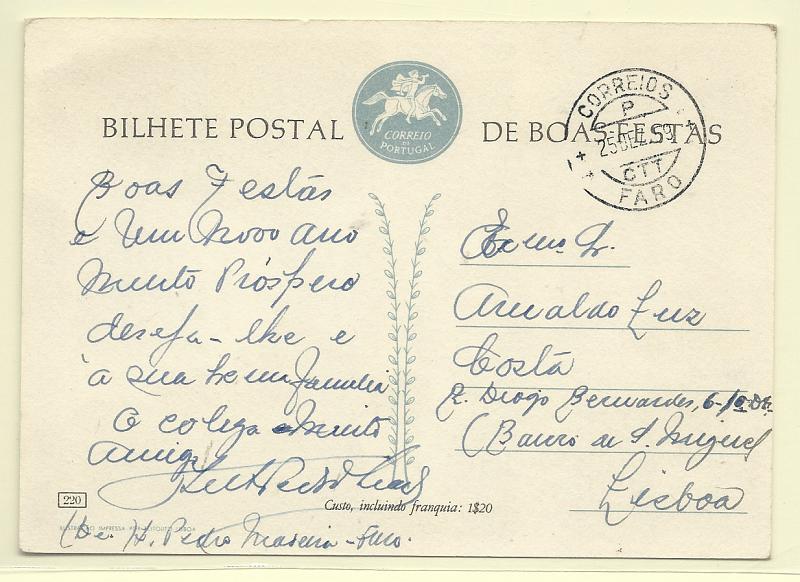 BILHETE POSTAL DE BOAS-FESTAS
CORREIO
DE
PORTUGAL
CORREIOS
P
25 DEZ. 59
CTT
FARO
Boas Festas
e Um Novo Ano
Muito Próspero
deseja-lhe e
à sua
família
o colega e Muito
amigo
Exmo Sr.
Arnaldo Luz
Costa
R. Diogo Bernardes, 6-1º-
(Bairro de S. Miguel
Lisboa
220
Custo, incluindo franquia: 1$20
IMPRESSA LISBOA
(De H. Pedro - Faro.